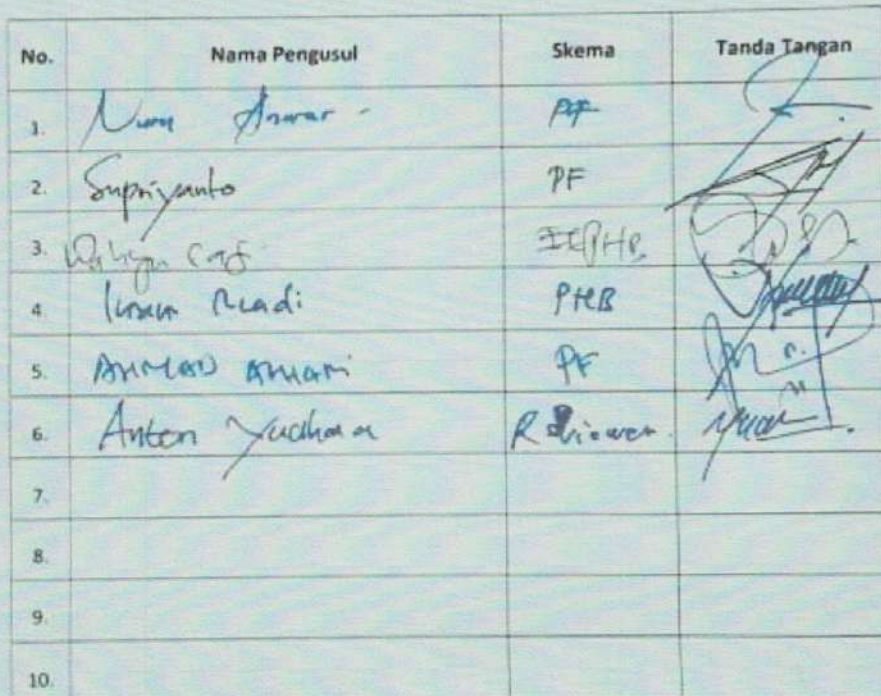 No. Nama Pengusul Skema Tanda Tangan
1. Nuru Anwar - PF
2. Supriyanto PF
3.
4. Imam Riadi PHB
5. AHMAD AZHARI PF
6. Anton Yudhana Reviewer
7.
8.
9.
10.